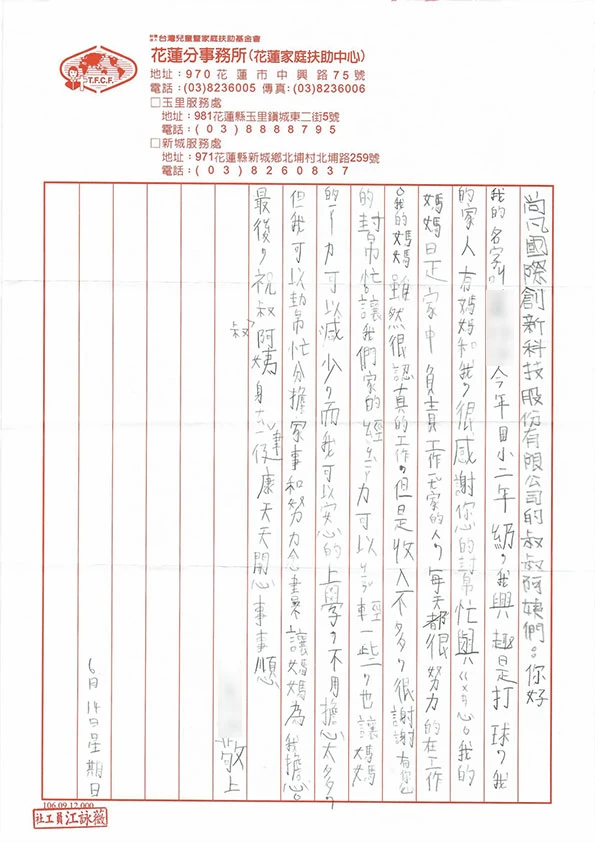 財團法人台灣兒童暨家庭扶助基金會
花蓮分事務所(花蓮家庭扶助中心)
地址:970花蓮市中興路75號
電話:(03)8236005 傳真:(03)8236006
□玉里服務處
地址:981花蓮縣玉里鎮城東二街5號
電話:(03)8888795
□新城服務處
地址:971花蓮縣新城鄉北埔村北埔路259號
電話:(03)8260837
T.F.C.F.
尚凡國際創新科技股份有限公司的叔叔阿姨們:你好
我的名字叫 今年國小二年級,我興趣是打球,我
的家人有媽媽和我,很感謝您的幫忙與ㄍㄨㄢ心。我的
媽媽是家中負責工作 家的人,每天都很努力的在工作
。我的媽媽雖然很認真的工作,但是收入不多,很謝謝有您
的幫忙讓我們家的經 力可以 輕一些,也讓媽媽
的ㄚ力可以減少,而我可以安心的上學,不用擔心太多,
但我可以幫忙分擔家事和努力念書 讓媽媽為我擔心。
最後,祝叔叔阿姨身 健康天天開心事事順
敬上
6月14日星期日
106.09.12,000
社工員江詠薇